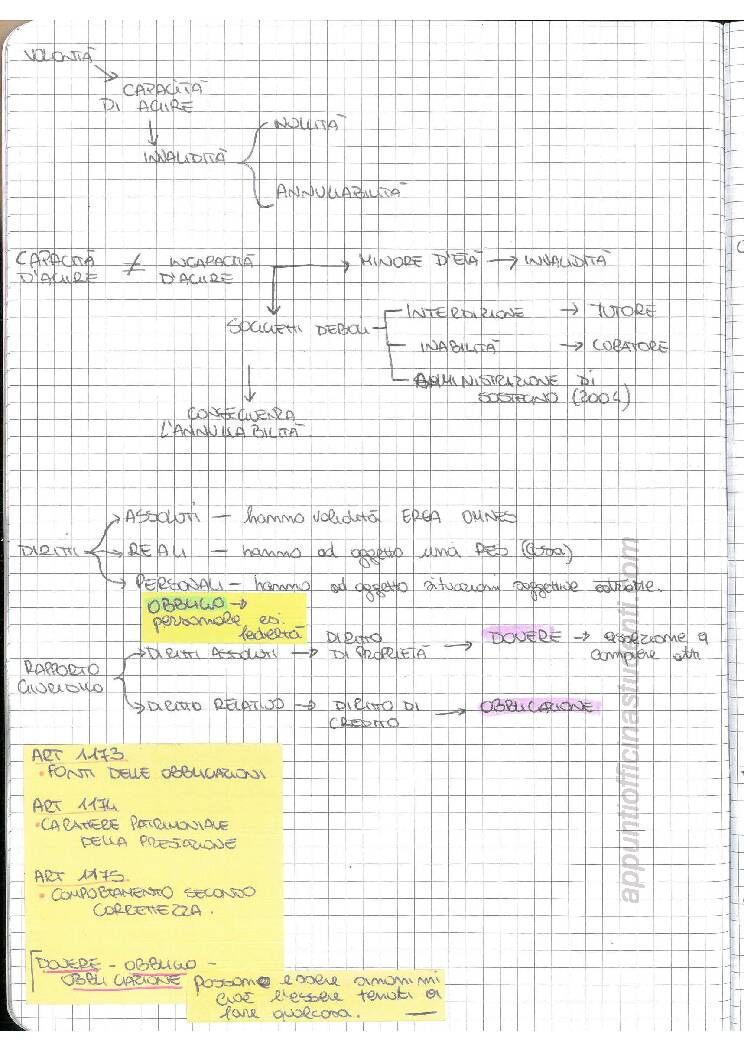 VOLONTÀ
CAPACITÀ
DI AGIRE
INVALIDITÀ
NULLITÀ
ANNULLABILITÀ
CAPACITÀ
D'AGIRE
≠
INCAPACITÀ
D'AGIRE
→ MINORE D'ETÀ → INVALIDITÀ
SOGGETTI DEBOLI
INTERDIZIONE → TUTORE
INABILITÀ → CURATORE
AMMINISTRAZIONE DI
SOSTEGNO (2004)
CONSEGUENZA
L'ANNULLABILITÀ
DIRITTI
ASSOLUTI - hanno validità ERGA OMNES
REALI - hanno ad oggetto una RES (cosa)
PERSONALI - hanno ad oggetto situazioni soggettive
OBBLIGO →
personale es.
fedeltà
RAPPORTO
GIURIDICO
DIRITTI ASSOLUTI → DIRITTO
DI PROPRIETÀ → DOVERE →
a
compiere atti
DIRITTO RELATIVO → DIRITTO DI
CREDITO → OBBLIGAZIONE
ART 1173
• FONTI DELLE OBBLIGAZIONI
ART 1174
• CARATTERE PATRIMONIALE
DELLA PRESTAZIONE
ART 1175
• COMPORTAMENTO SECONDO
CORRETTEZZA.
DOVERE - OBBLIGO -
OBBLIGAZIONE possono essere sinonimi
cioè l'essere tenuti a
fare qualcosa.
appuntiofficinastudenti.com